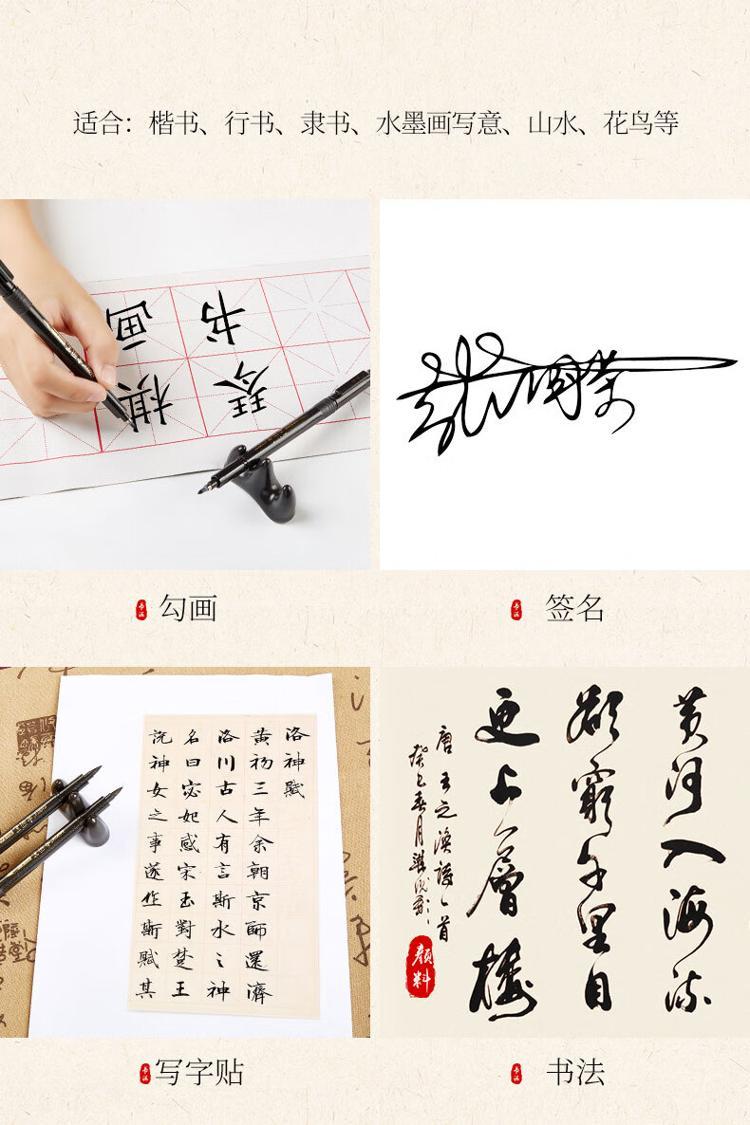 适合：楷书、行书、隶书、水墨画写意、山水、花鸟等
书画
琴棋
勾画
签名
洛神赋
黄初三年余朝京師還濟
洛川古人有言斯水之神
名曰宓妃感宋玉對楚王
説神女之事遂作斯賦其
黄河入海流
欲窮千里目
更上一層樓
唐王之涣詩一首
癸巳春月
颜料
写字贴
书法